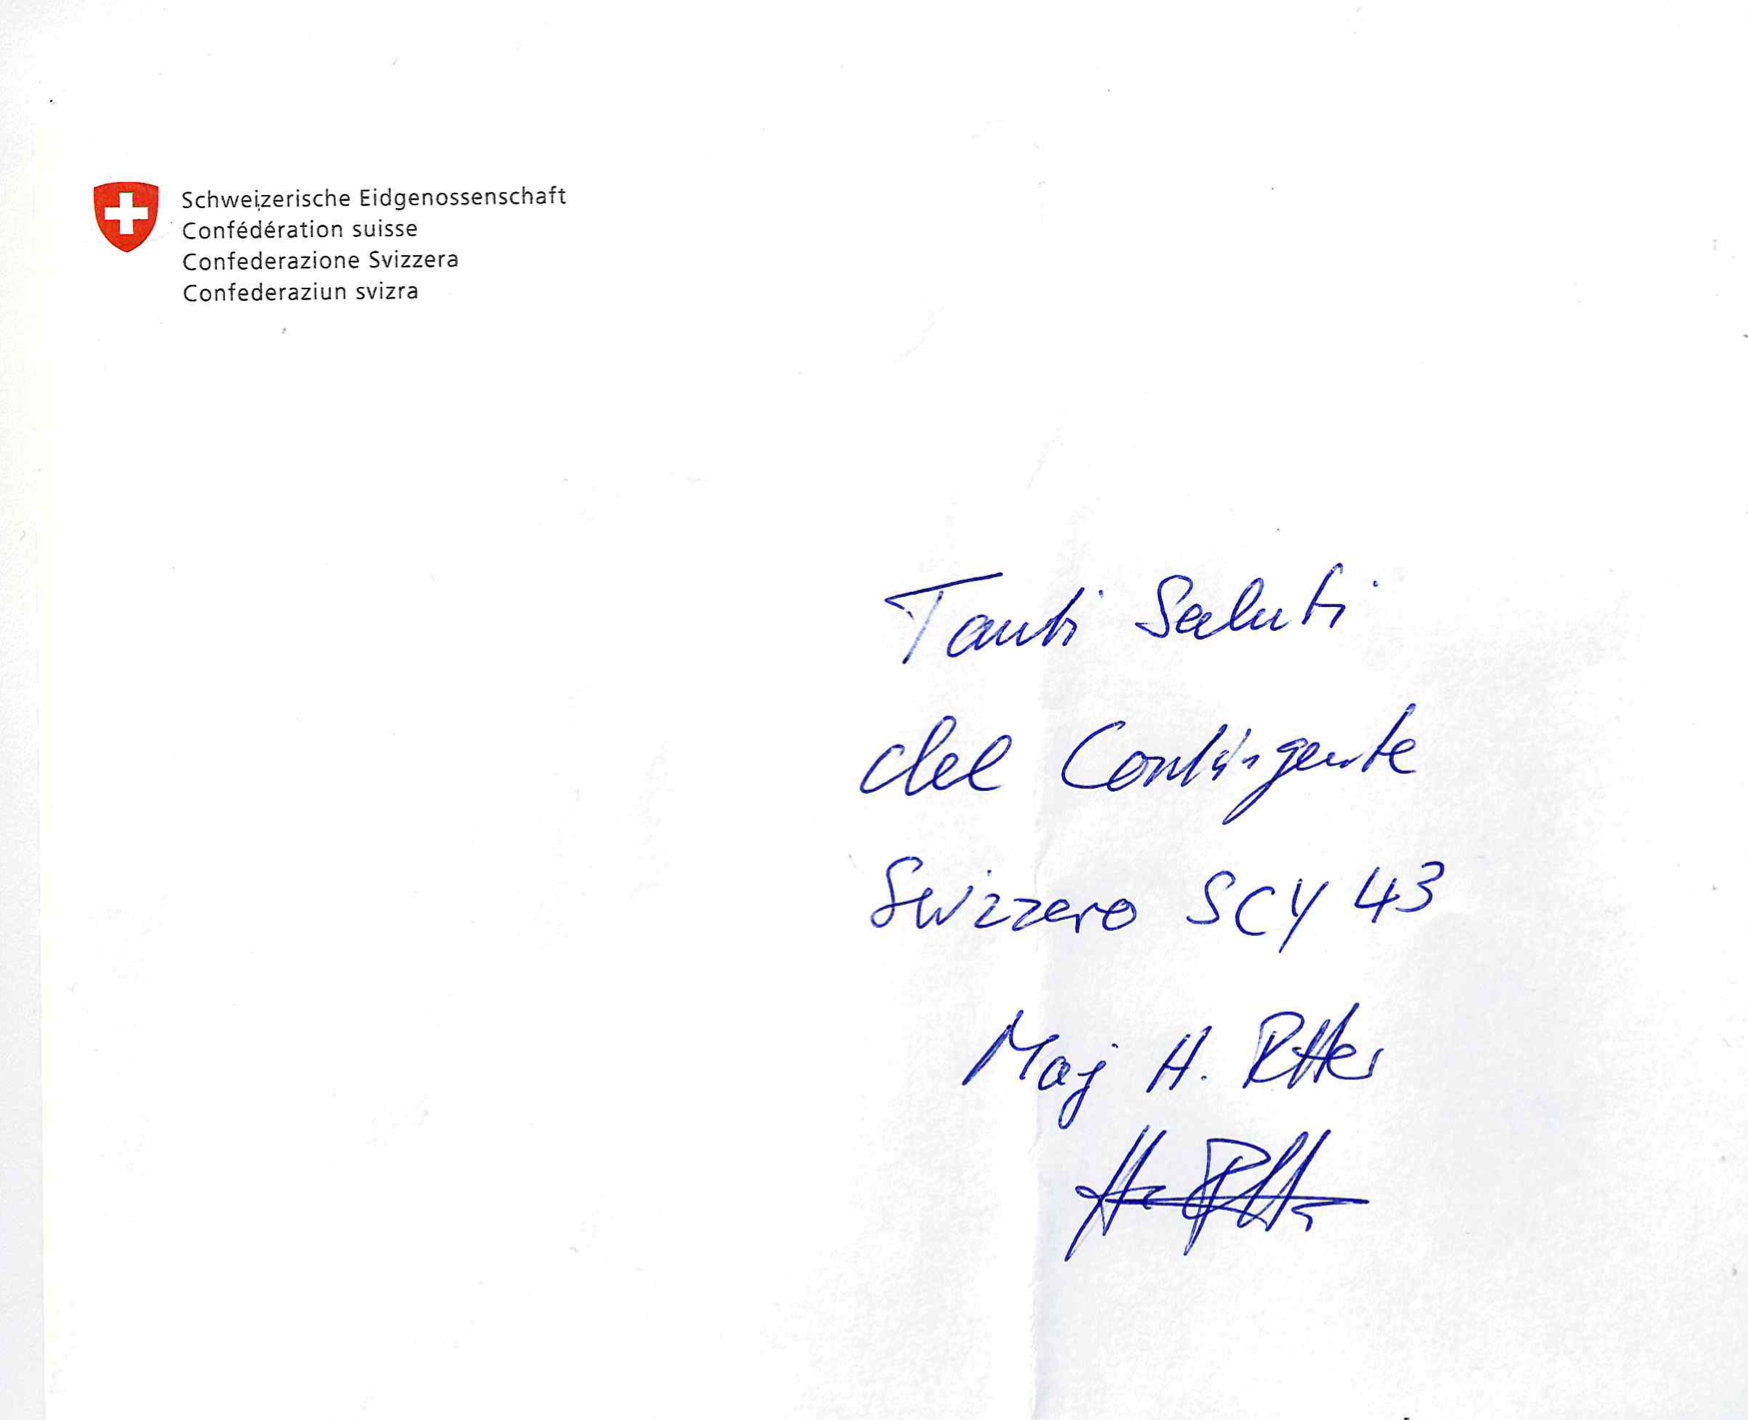 Schweizerische Eidgenossenschaft
Confédération suisse
Confederazione Svizzera
Confederaziun svizra
Tanti Saluti
del Contingente
Svizzero SCY 43
Maj H. Ritter